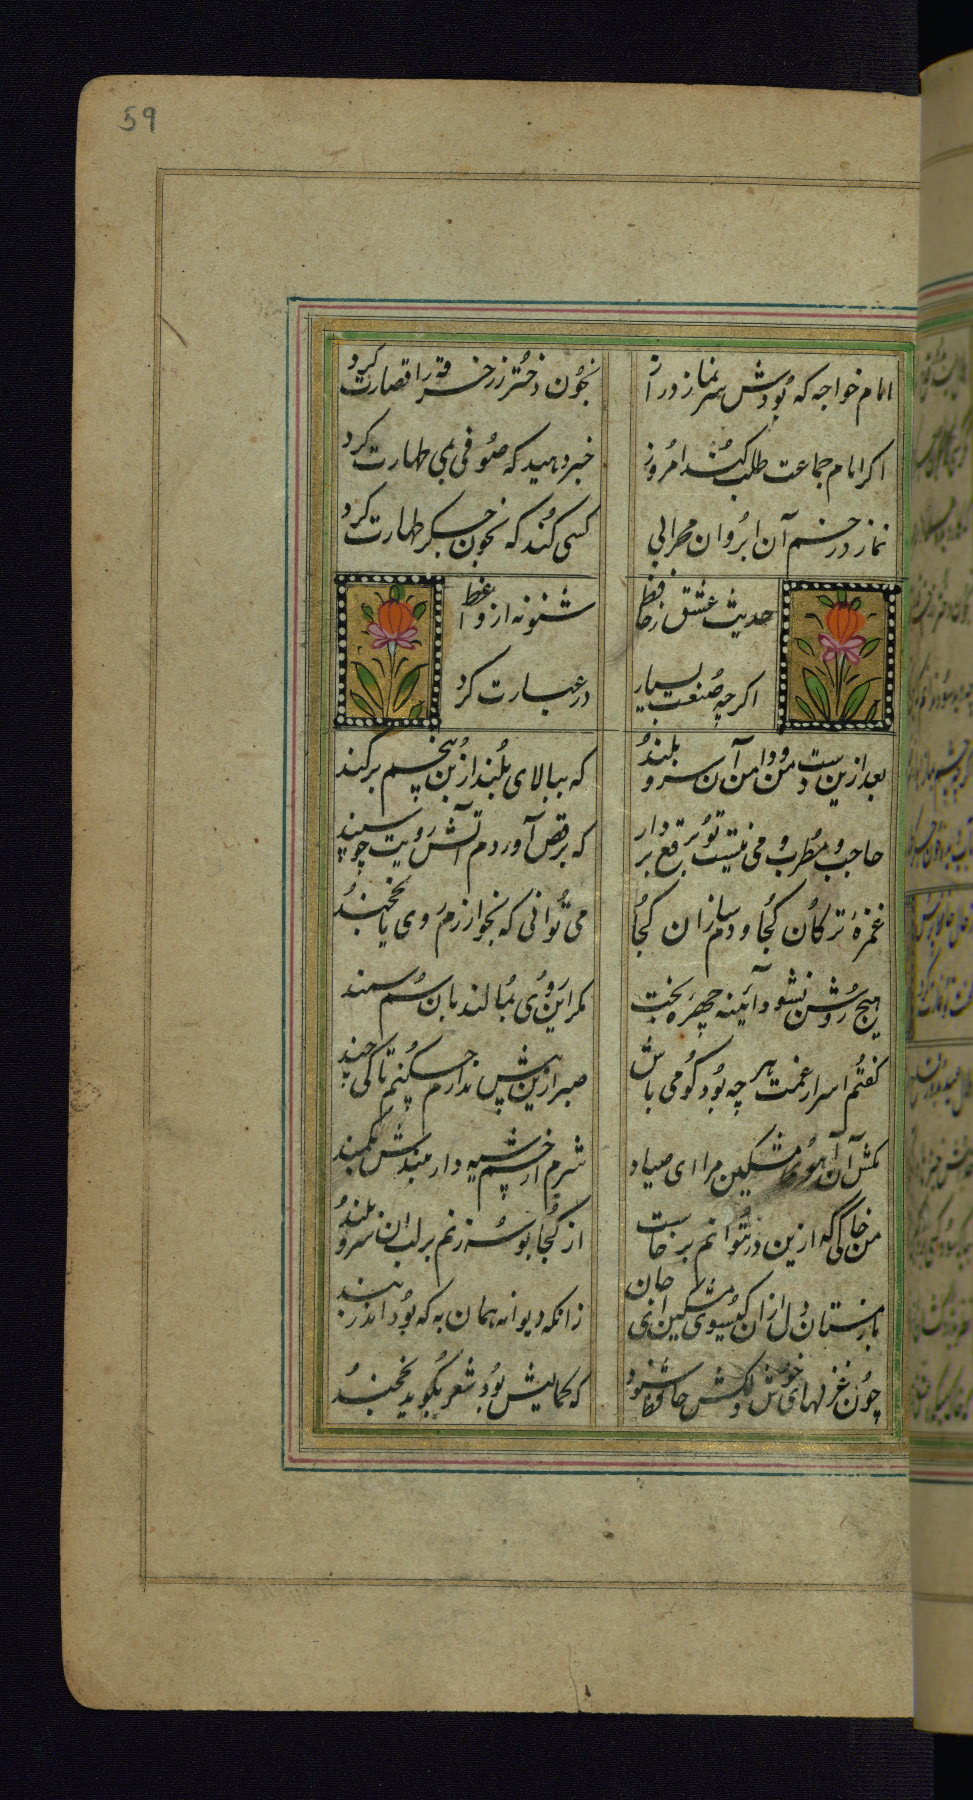 59
امام خواجه که بودش سر نماز دراز
بخون دختر رز خرقه را قصارت کرد
اکر امام جماعت طلب کند امروز
خبر دهید که صوفی بمی طهارت کرد
نماز در خم آن ابروان محرابی
کسی کند که بخون جکر طهارت کرد
حدیث عشق ز حافظ
شنو نه از واعظ
اکرچه صنعت بسیار
در عبارت کرد
بعد ازین دست من و دامن آن سرو بلند
که ببالای بلند از بن و بیخم برکند
حاجت مطرب و می نیست تو برقع بردار
که برقص آوردم آتش رویت چو سپند
غمزهٔ ترکان کجا و دم سازان کجا
می توانی که
هیچ روشن نشود آئینه چهره بخت
مکر این روی بمالند بان سم سمند
کفتم اسرار غمت هر چه بود کو می باش
صبر ازین پیش ندارم چکنم تا کی چند
مکش آن آهوی مشکین مرا ای صیاد
شرم از آن چشم سیه دار مبندش بکمند
من خاکی که ازین در نتوانم برخاست
از کجا بوسه زنم بر لب آن سرو بلند
باز مستان دل ازان کیسوی مشکین ای جان
زانکه دیوانه همان به که بود اندر بند
چون غزلهای خوش دلکش حافظ شنود
که کمالیش بود شعر نکوید بخجند